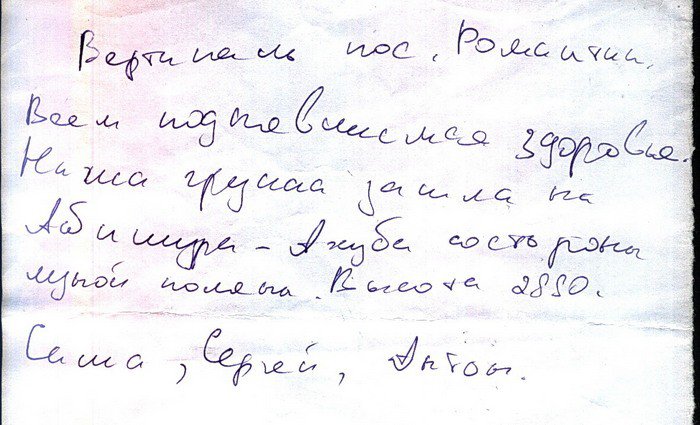 Вертикаль пос. Романтик.
Всем поднявшимся здоровья.
Наша группа зашла на
Абишира-Ахуба со стороны
луной поляны. Высота 2850.
Саша, Сергей, Антон.